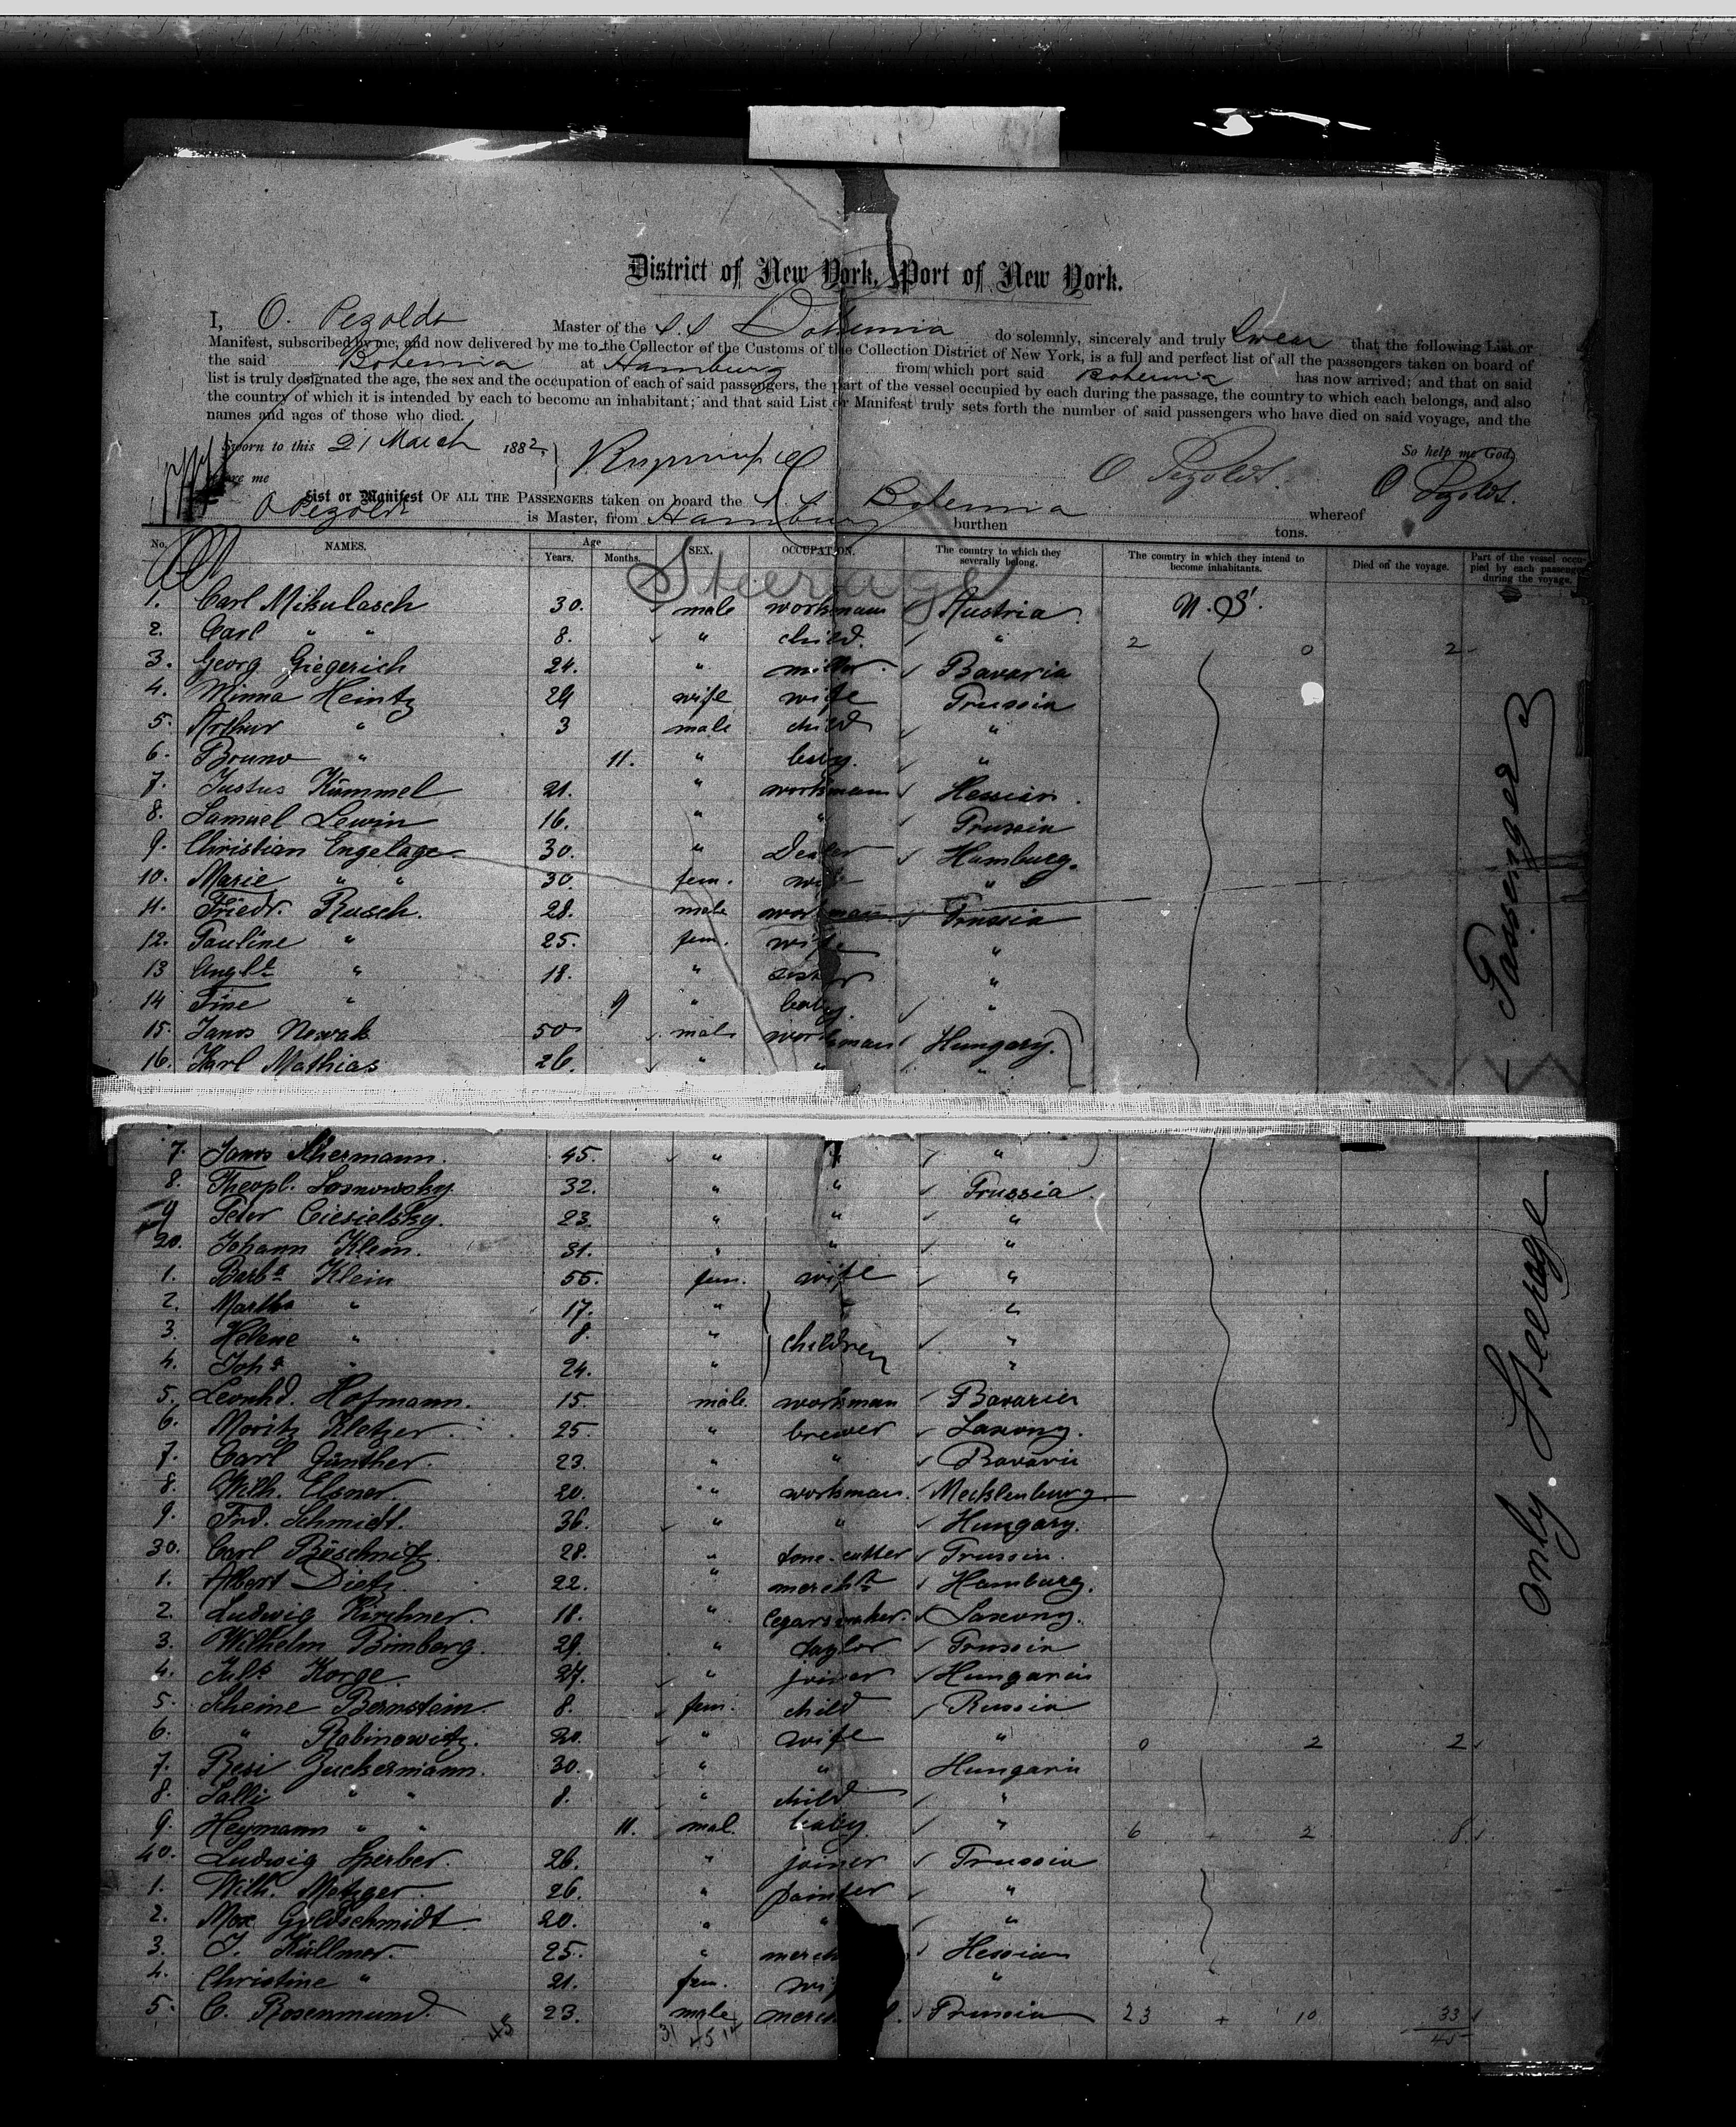 District of New York, Port of New York.
I, O. Pezoldt Master of the S. S. Bohemia do solemnly, sincerely and truly Swear that the following List or
Manifest, subscribed by me, and now delivered by me to the Collector of the Customs of the Collection District of New York, is a full and perfect list of all the passengers taken on board of
the said Bohemia at Hamburg from which port said Bohemia has now arrived; and that on said
list is truly designated the age, the sex and the occupation of each of said passengers, the part of the vessel occupied by each during the passage, the country to which each belongs, and also
the country of which it is intended by each to become an inhabitant; and that said List or Manifest truly sets forth the number of said passengers who have died on said voyage, and the
names and ages of those who died.
So help me God,
Sworn to this 21 March 1882 O Pezoldt. O Pezoldt.
before me
List or Manifest OF ALL THE PASSENGERS taken on board the S. S. Bohemia whereof
O Pezoldt is Master, from Hamburg burthen tons.
No. NAMES. Age Years. Months. SEX. OCCUPATION. The country to which they severally belong. The country in which they intend to become inhabitants. Died on the voyage. Part of the vessel occupied by each passenger during the voyage.
Steerage
1. Carl Mikulasch 30. male workman Austria. U. S.
2. Carl " " 8. " child. " 2 0 2
3. Georg Giegerich 24. " miller. Bavaria
4. Minna Heintz 24 wife wife Prussia
5. Arthur " 3 male child "
6. Bruno " 11. " baby. "
7. Justus Kümmel 21. " workman Hessian.
8. Samuel Lewin 16. " " Prussia
9. Christian Engelage. 30. " Dealer Hamburg.
10. Marie " " 30. fem. wife "
11. Friedr. Rusch. 28. male workman Prussia
12. Pauline " 25. fem. wife "
13 " 18. " sister "
14 Tine " 9 " baby. "
15. Janos Nowak 50 male workman Hungary.
16. Karl Mathias 26. " " "
7. Janos 45. " " "
8. Theopl. Losnowsky 32. " " Prussia.
9 Peter Ciesielsky. 23. " " "
20. Johann Klein. 31. " " "
1. Barba Klein 55. fem. wife "
2. Martha " 17. " "
3. Helene " 8. " children "
4. Joha " 24. " "
5. Leonhd. Hofmann. 15. male. workman Bavaria
6. Moritz Kletzer. 25. " brewer Saxony.
7. Carl Günther. 23. " " Bavaria
8. Wilh. Elsner. 20. " workman. Mecklenburg
9. Frd. Schmidt. 36. " " Hungary.
30. Carl Büschnitz. 28. " tone-cutter Prussia.
1. Albert Dietz. 22. " mercht Hamburg.
2. Ludwig Kirchner. 18. " Cegarsmaker. Saxony.
3. Wilhelm Bimberg. 29. " taylor Prussia
4. Juls Korge. 27. " joiner Hungaria
5. Scheine Bernstein. 8. fem. child Russia
6. " Rabinowitz. 20. " wife " 0 2 2
7. Resi Zuckermann. 30. " " Hungaria
8. Salli " " 8. " child "
9. Heymann " " 11. mal. baby " 6 + 2 8
40. Ludwig Sperber. 26. " joiner Prussia
1. Wilh. Metzger. 26. " painter "
2. Max Goldschmidt 20. " " "
3. J. Küllmer. 25. " merch Hessian
4. Christine " 21. fem. wi "
5. C. Rosenmund. 23. male merch Prussia 23 + 10 33
45 31 45 14 45
Passengers
only Steerage